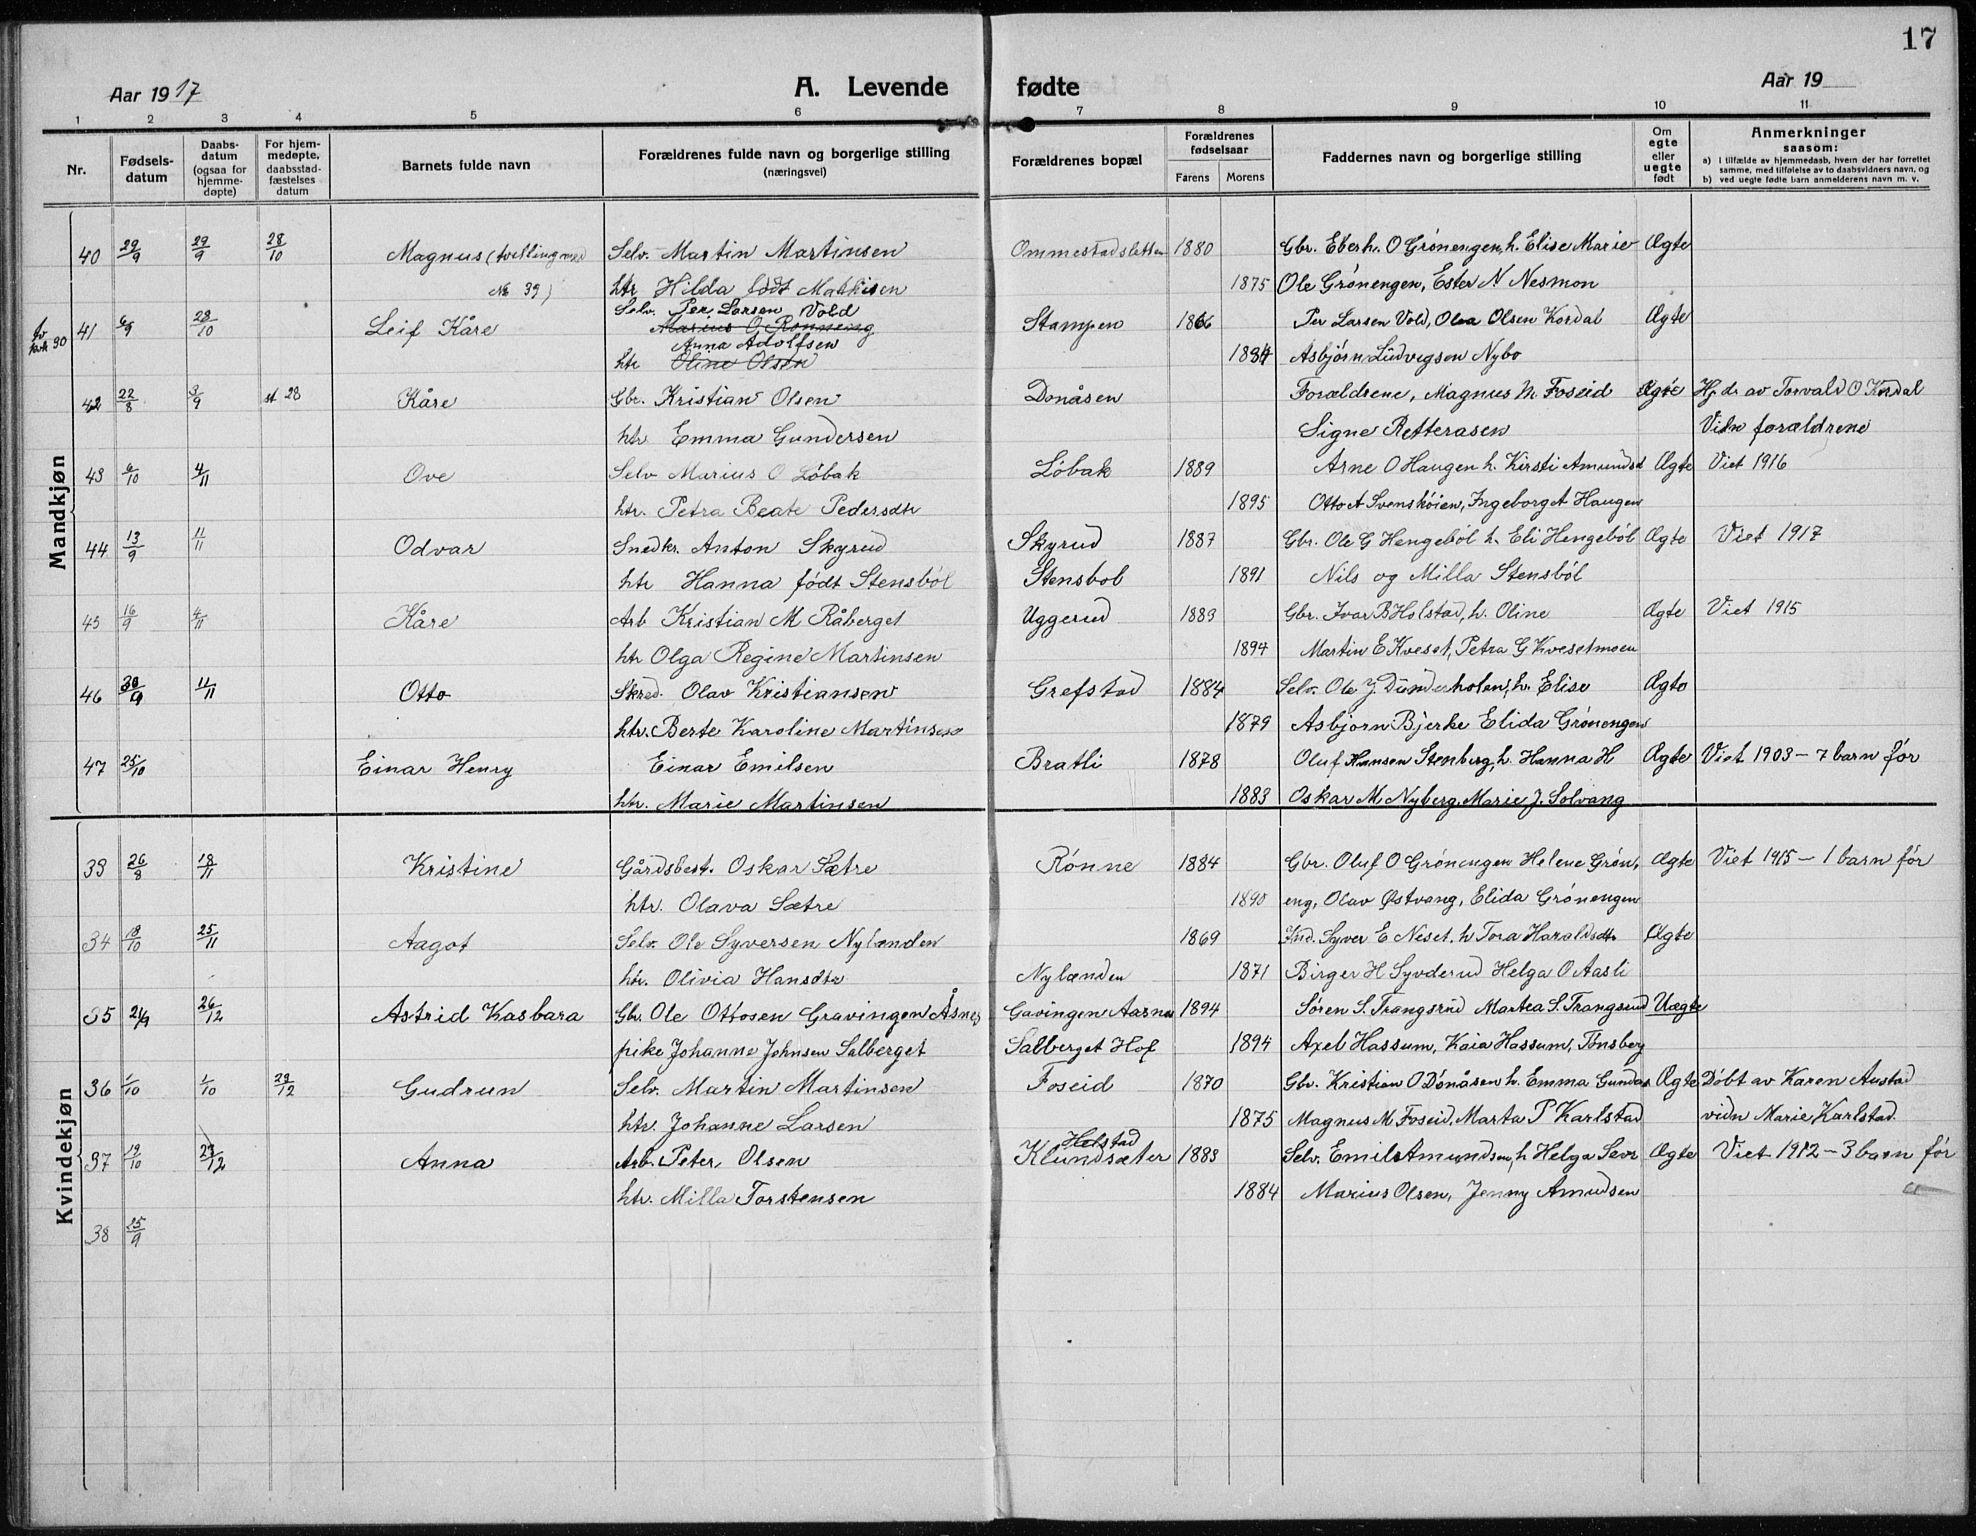 17
Aar 1917 A. Levende fødte Aar 19
1 2 3 4 5 6 7 8 9 10 11
Nr. Fødselsdatum Daabsdatum (ogsaa for hjemmedøpte) For hjemmedøpte, daabsstadfæstelses datum Barnets fulde navn Forældrenes fulde navn og borgerlige stilling (næringsvei) Forældrenes bopæl Forældrenes fødselsaar Farens Morens Faddernes navn og borgerlige stilling Om egte eller uegte født Anmerkninger saasom: a) I tilfælde av hjemmedaab, hvem der har forrettet samme, med tilføielse av to daabsvidners navn, og b) ved uegte fødte barn anmelderens navn m. v.
Mandkjøn
40 29/9 29/9 28/10 Magnus (tvilling med Selv. Martin Martinsen Ommestadsletten 1880 Gbr. Eberh. O Grönengen, h. Elise Marie Ægte
No 39) htr Hilda født Mathisen 1875 Ole Grönengen, Ester N Nesmon
41 6/9 28/10 Leif Kåre Selv. Per Larsen Vold Stampen 1866 Per Larsen Vold, Olea Olsen Kordal Ægte
Marius O Rønning
Anna Adolfsen
htr Oline Olsen 1884 Asbjörn Ludvigsen Nybo
42 22/8 3/9 st 28 Kåre Gbr. Kristian Olsen Donåsen Forældrene, Magnus M. Foseid Ægte Hj. dr av Torvald O Kordal
htr Emma Gundersen Signe Retterasen Vidn forældrene
43 6/10 4/11 Ove Selv Marius O Löbak Löbak 1889 Arne O Haugen h. Kirsti Amundsd Ægte Viet 1916
htr. Petra Beate Pedersdtr 1895 Otto et Svenshöien, Ingeborget Haugen
44 13/9 11/11 Odvar Snedkr. Anton Skyrud Skyrud 1887 Gbr. Ole G Hengeböl h. Eli Hengeböl Ægte Viet 1917
htr Hanna født Stensböl Stensbol 1891 Nils og Milla Stensböl
45 16/9 4/11 Kåre Arb Kristian M Råberget Uggerud 1889 Gbr. Ivar B Holstad, h. Oline Ægte Viet 1915
htr Olga Regine Martinsen 1894 Martin E Kveset, Petra G Kvesetmoen
46 30/9 11/11 Otto Skred. Olav Kristiansen Grefstad 1884 Selv. Ole J. Dunderholen, h. Elise Ægte
htr. Berte Karoline Martinsen 1879 Asbjorn Bjerke Elida Grönengen
47 25/10 Einar Henry Einar Emilsen Bratli 1878 Oluf Hansen Stenberg, h. Hanna H Ægte Viet 1903 – 7 barn før
htr. Marie Martinsen 1883 Oskar M. Nyberg, Marie J. Solvang
Kvindekjøn
33 26/8 18/11 Kristine Gårdsbest. Oskar Sætre Rönne 1884 Gbr. Oluf O Grönengen Helene Grön, Ægte Viet 1915 – 1 barn før
htr. Olava Sætre 1890 eng, Olav Østvang, Elida Grönengen
34 18/10 25/11 Aagot Selv. Ole Syversen Nylænden 1869 Ind. Syver E Neset. h Tora Haraldsdtr Ægte
htr. Olivia Hansdtr Nylænden 1871 Birger H Syvderud Helga O Aasli
35 21/9 26/12 Astrid Kasbara Gbr. Ole Ottosen Gravingen Åsnes Gavingen Aasnes 1894 Søren S. Trangsrud Martea S. Trangsrud Uægte
pike Johanne Johnsen Salberget Salberget Hof 1894 Axel Hassum, Kaia Hassum, Tönsberg
36 1/10 1/10 29/12 Gudrun Selv. Martin Martinsen Foseid 1870 Gbr. Kristian O Dönåsen h. Emma Gunders Ægte Döbt av Karen Austad
htr. Johanne Larsen 1875 Magnus M Foseid, Marta P Karlstad vidn Marie Karlstad.
Helstad
37 19/10 27/12 Anna Arb. Peter Olsen Klundsæter 1883 Selv. Emil Amundsen, h Helga Sevr Ægte Viet 1912 – 3 barn før
htr. Milla Torstensen 1884 Marius Olsen, Jenny Amudsen
38 25/9